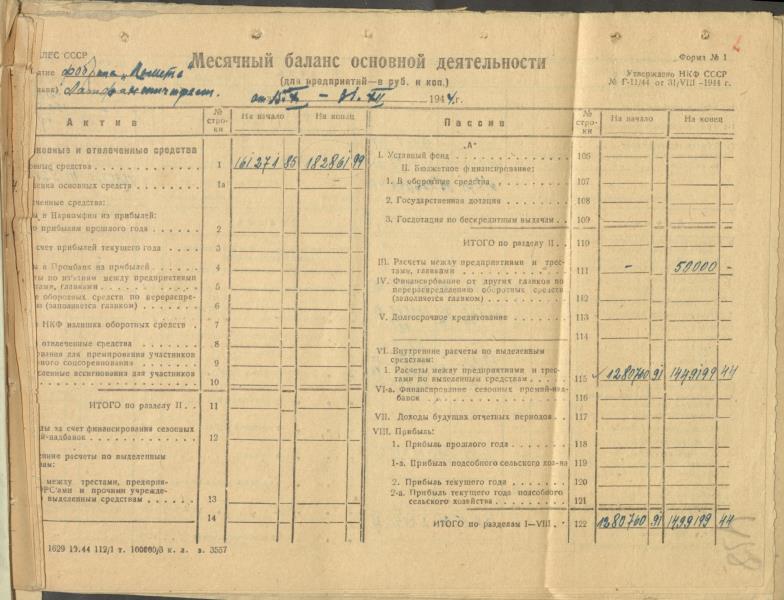 ЛЕС СССР
Месячный баланс основной деятельности
(для предприятий—в руб. и коп.)
Форма № 1
Утверждено НКФ СССР
№ Г-11/44 от 31/VIII -1944 г.
фабрика
от 15.X — 31.XII 1944 г.
Актив
№ строки
На начало
На конец
Пассив
№ строки
На начало
На конец
основные и отвлеченные средства
средства 1 161271 85 182861 99
основных средств 1а
отвлеченные средства:
в Наркомфин из прибылей:
прибылям прошлого года 2
счет прибылей текущего года 3
в Промбанк из прибылей 4
по изъятиям между предприятиями
трестами, главками 5
оборотных средств по перераспре-
(заполняется главком) 6
НКФ излишка оборотных средств 7
отвлеченные средства 8
для премирования участников
соцсоревнования» 9
ассигнования для участников
10
ИТОГО по разделу II 11
за счет финансирования сезонных
-надбавок 12
расчеты по выделенным
между трестами, предприя-
ОРС'ами и прочими учрежде-
выделенным средствам 13
14
1629 19.44 112/1 т. 100000/3 к. л. з. 3557
„А"
I. Уставный фонд 106
II. Бюджетное финансирование:
1. В оборотные средства 107
2. Государственная дотация 108
3. Госдотация по бескредитным выдачам 109
ИТОГО по разделу II 110
III. Расчеты между предприятиями и трес-
тами, главками 111 - 50000 -
IV. Финансирование от других главков по
перераспределению оборотных средств
(заполняется главком) 112
V. Долгосрочное кредитование 113
114
VI. Внутренние расчеты по выделенным
средствам:
1. Расчеты между предприятиями и трес-
тами по выделенным средствам 115 1280760 91 1449199 44
VI-а. Финансирование сезонных премий-над-
бавок 116
VII. Доходы будущих отчетных периодов 117
VIII. Прибыль:
1. Прибыль прошлого года 118
1-а. Прибыль подсобного сельского хоз-ва 119
2. Прибыль текущего года 120
2-а. Прибыль текущего года подсобного
сельского хозяйства 121
ИТОГО по разделам I—VIII 122 1280760 91 1499199 44